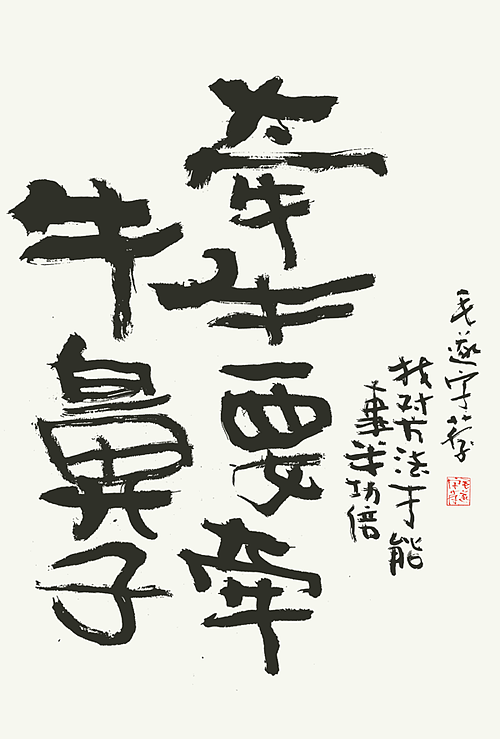 牵牛要牵
牛鼻子
找对方法才能
事半功倍
毛遂字荐